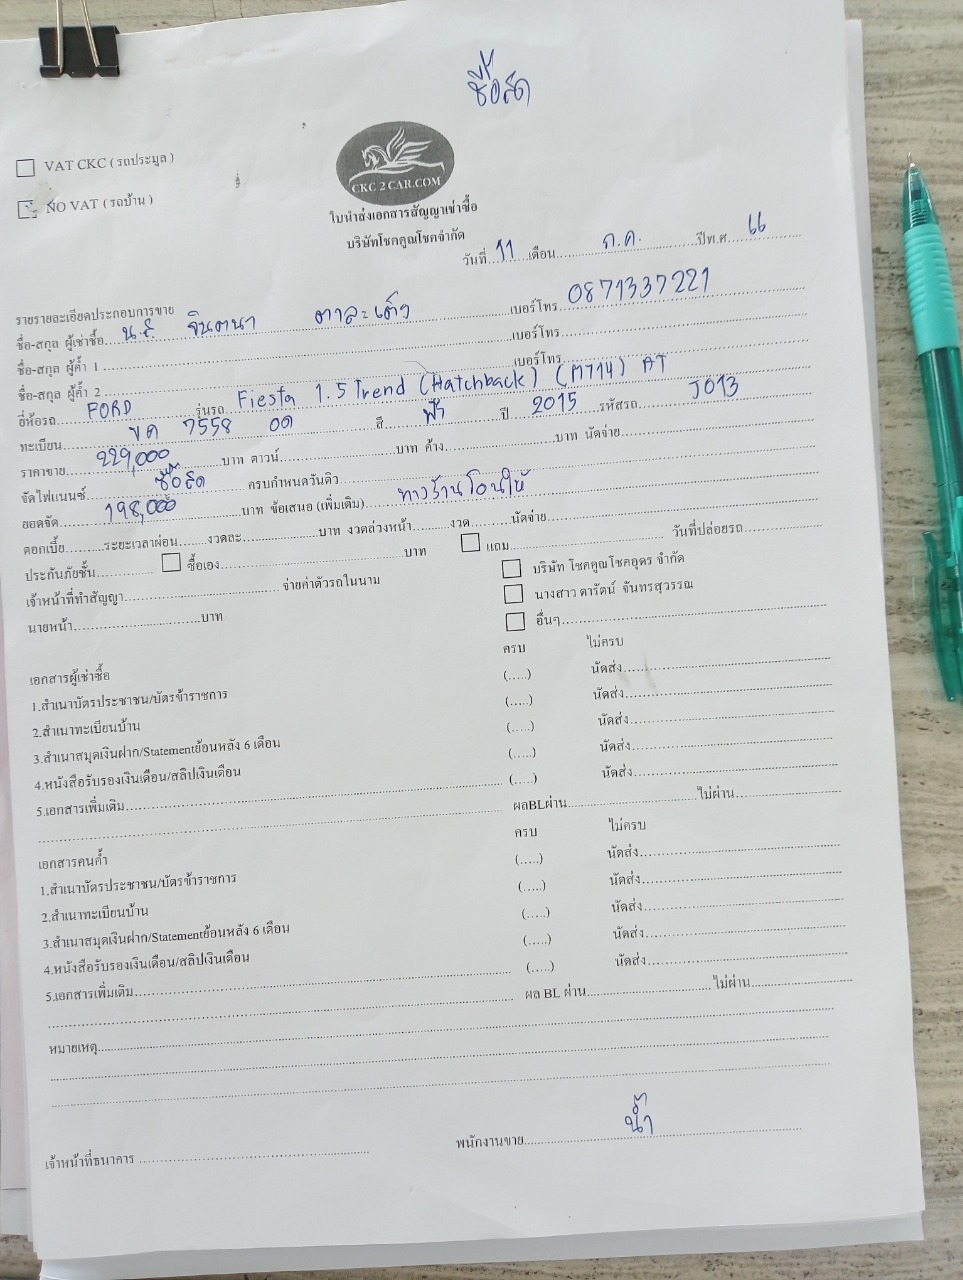 ซื้อสด
VAT CKC ( รถประมูล )
NO VAT ( รถบ้าน )
CKC 2 CAR.COM
ใบนำส่งเอกสารสัญญาเช่าซื้อ
บริษัทโชคคูณโชคจำกัด
วันที่ 11 เดือน ก.ค. ปีพ.ศ 66
รายรายละเอียดประกอบการขาย
ชื่อ-สกุล ผู้เช่าซื้อ น.ส จินตนา ตาละเต็ง เบอร์โทร 0871337221
ชื่อ-สกุล ผู้ค้ำ 1 เบอร์โทร
ชื่อ-สกุล ผู้ค้ำ 2 เบอร์โทร
ยี่ห้อรถ FORD รุ่นรถ Fiesta 1.5 Trend (Hatchback) (M714) AT
ทะเบียน ขด 7558 อด สี ฟ้า ปี 2015 รหัสรถ J013
ราคาขาย 229,000 บาท ดาวน์ บาท ค้าง บาท นัดจ่าย
จัดไฟแนนซ์ ซื้อสด ครบกำหนดวันดิว
ยอดจัด 198,000 บาท ข้อเสนอ (เพิ่มเติม) ทางร้านโอนให้
ดอกเบี้ย ระยะเวลาผ่อน งวดละ บาท งวดล่วงหน้า งวด นัดจ่าย
ประกันภัยชั้น ซื้อเอง บาท แถม วันที่ปล่อยรถ
เจ้าหน้าที่ทำสัญญา จ่ายค่าตัวรถในนาม บริษัท โชคคูณโชคอุดร จำกัด
นางสาว ดารัตน์ จันทรสุวรรณ
นายหน้า บาท อื่นๆ
เอกสารผู้เช่าซื้อ ครบ ไม่ครบ
1.สำเนาบัตรประชาชน/บัตรข้าราชการ (.....) นัดส่ง
2.สำเนาทะเบียนบ้าน (.....) นัดส่ง
3.สำเนาสมุดเงินฝาก/Statementย้อนหลัง 6 เดือน (.....) นัดส่ง
4.หนังสือรับรองเงินเดือน/สลิปเงินเดือน (.....) นัดส่ง
5.เอกสารเพิ่มเติม (.....) นัดส่ง
ผลBLผ่าน ไม่ผ่าน
เอกสารคนค้ำ ครบ ไม่ครบ
1.สำเนาบัตรประชาชน/บัตรข้าราชการ (.....) นัดส่ง
2.สำเนาทะเบียนบ้าน (.....) นัดส่ง
3.สำเนาสมุดเงินฝาก/Statementย้อนหลัง 6 เดือน (.....) นัดส่ง
4.หนังสือรับรองเงินเดือน/สลิปเงินเดือน (.....) นัดส่ง
5.เอกสารเพิ่มเติม (.....) นัดส่ง
ผล BL ผ่าน ไม่ผ่าน
หมายเหตุ
เจ้าหน้าที่ธนาคาร พนักงานขาย น้ำ